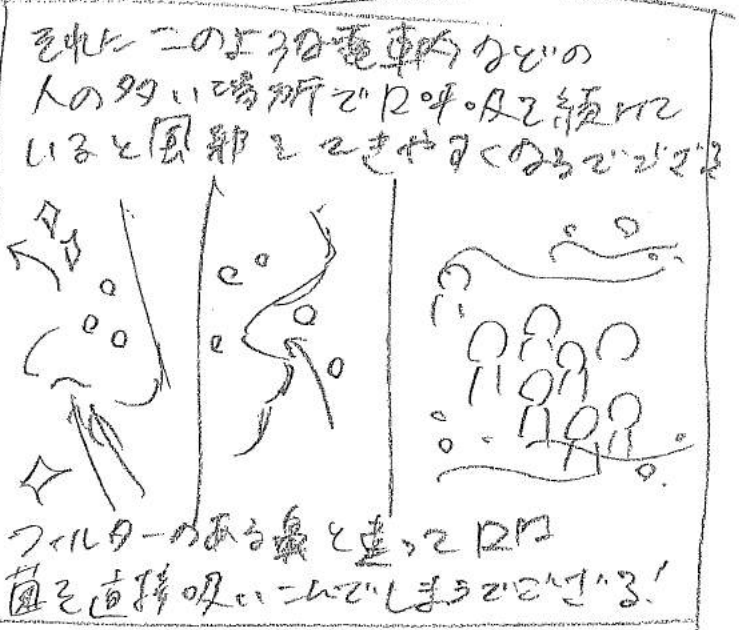 それにこのような電車内などの
人の多い場所で口呼吸を続けて
いると風邪をひきやすくなるでござる
フィルターのある鼻と違って口は
菌を直接吸いこんでしまうでござる！